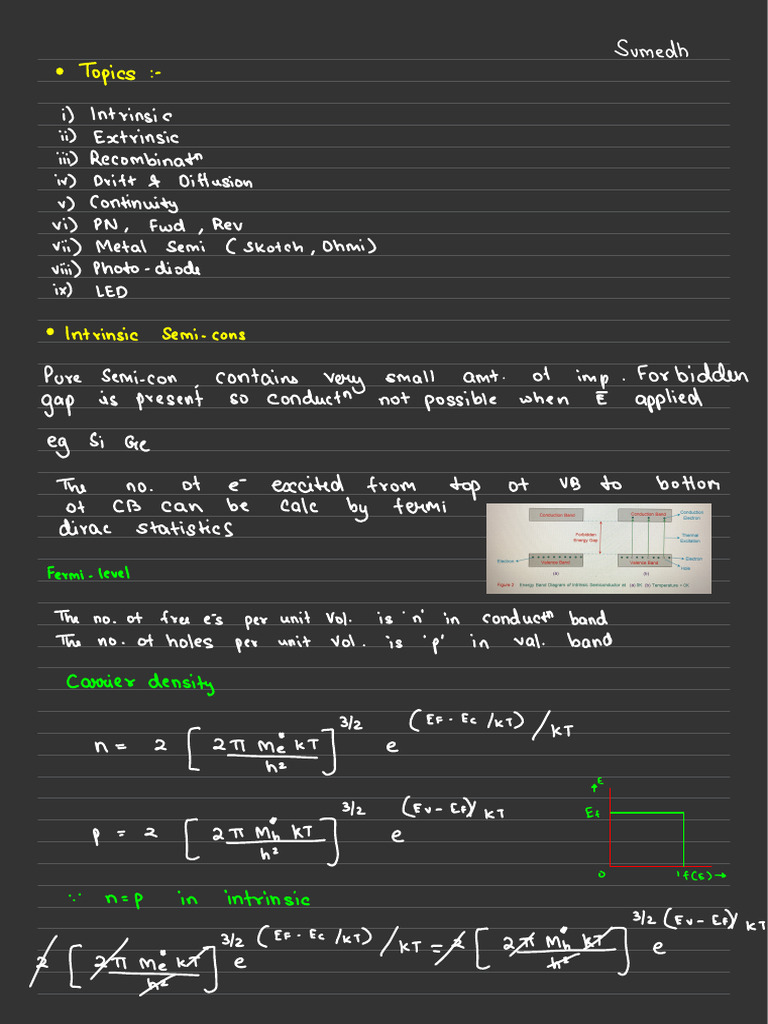 Sumedh
• Topics :-
i) Intrinsic
ii) Extrinsic
iii) Recombinatⁿ
iv) Drift & Diffusion
v) Continuity
vi) PN, Fwd, Rev
vii) Metal Semi (Skotch, Ohmi)
viii) Photo-diode
ix) LED
• Intrinsic Semi-cons
Pure Semi-con, contains very small amt. of imp. Forbidden
gap is present so conductⁿ not possible when E̅ applied
eg Si Ge
The no. of e⁻ excited from top of VB to bottom
of CB can be calc by fermi
dirac statistics
Conduction Band Conduction Band Conduction Electron
Forbidden Energy Gap Thermal Excitation
Electron Valence Band Valence Band Electron
Hole
(a) (b)
Figure 2 Energy Band Diagram of Intrinsic Semiconductor at (a) 0K (b) Temperature > 0K
Fermi-level
The no. of free e⁻s per unit Vol. is 'n' in conductⁿ band
The no. of holes per unit vol. is 'p' in val. band
Carrier density
n = 2 [2π me* kT / h²]^3/2 e^(EF - Ec /kT) / kT
E
Ef
0 1 f(E) →
p = 2 [2π Mh* kT / h²]^3/2 e^(Ev - Ef)/kT
∵ n=p in intrinsic
2 [2π me* kT / h²]^3/2 e^(EF - Ec /kT) / kT = 2 [2π Mh* kT / h²]^3/2 e^(Ev - Ef)/kT